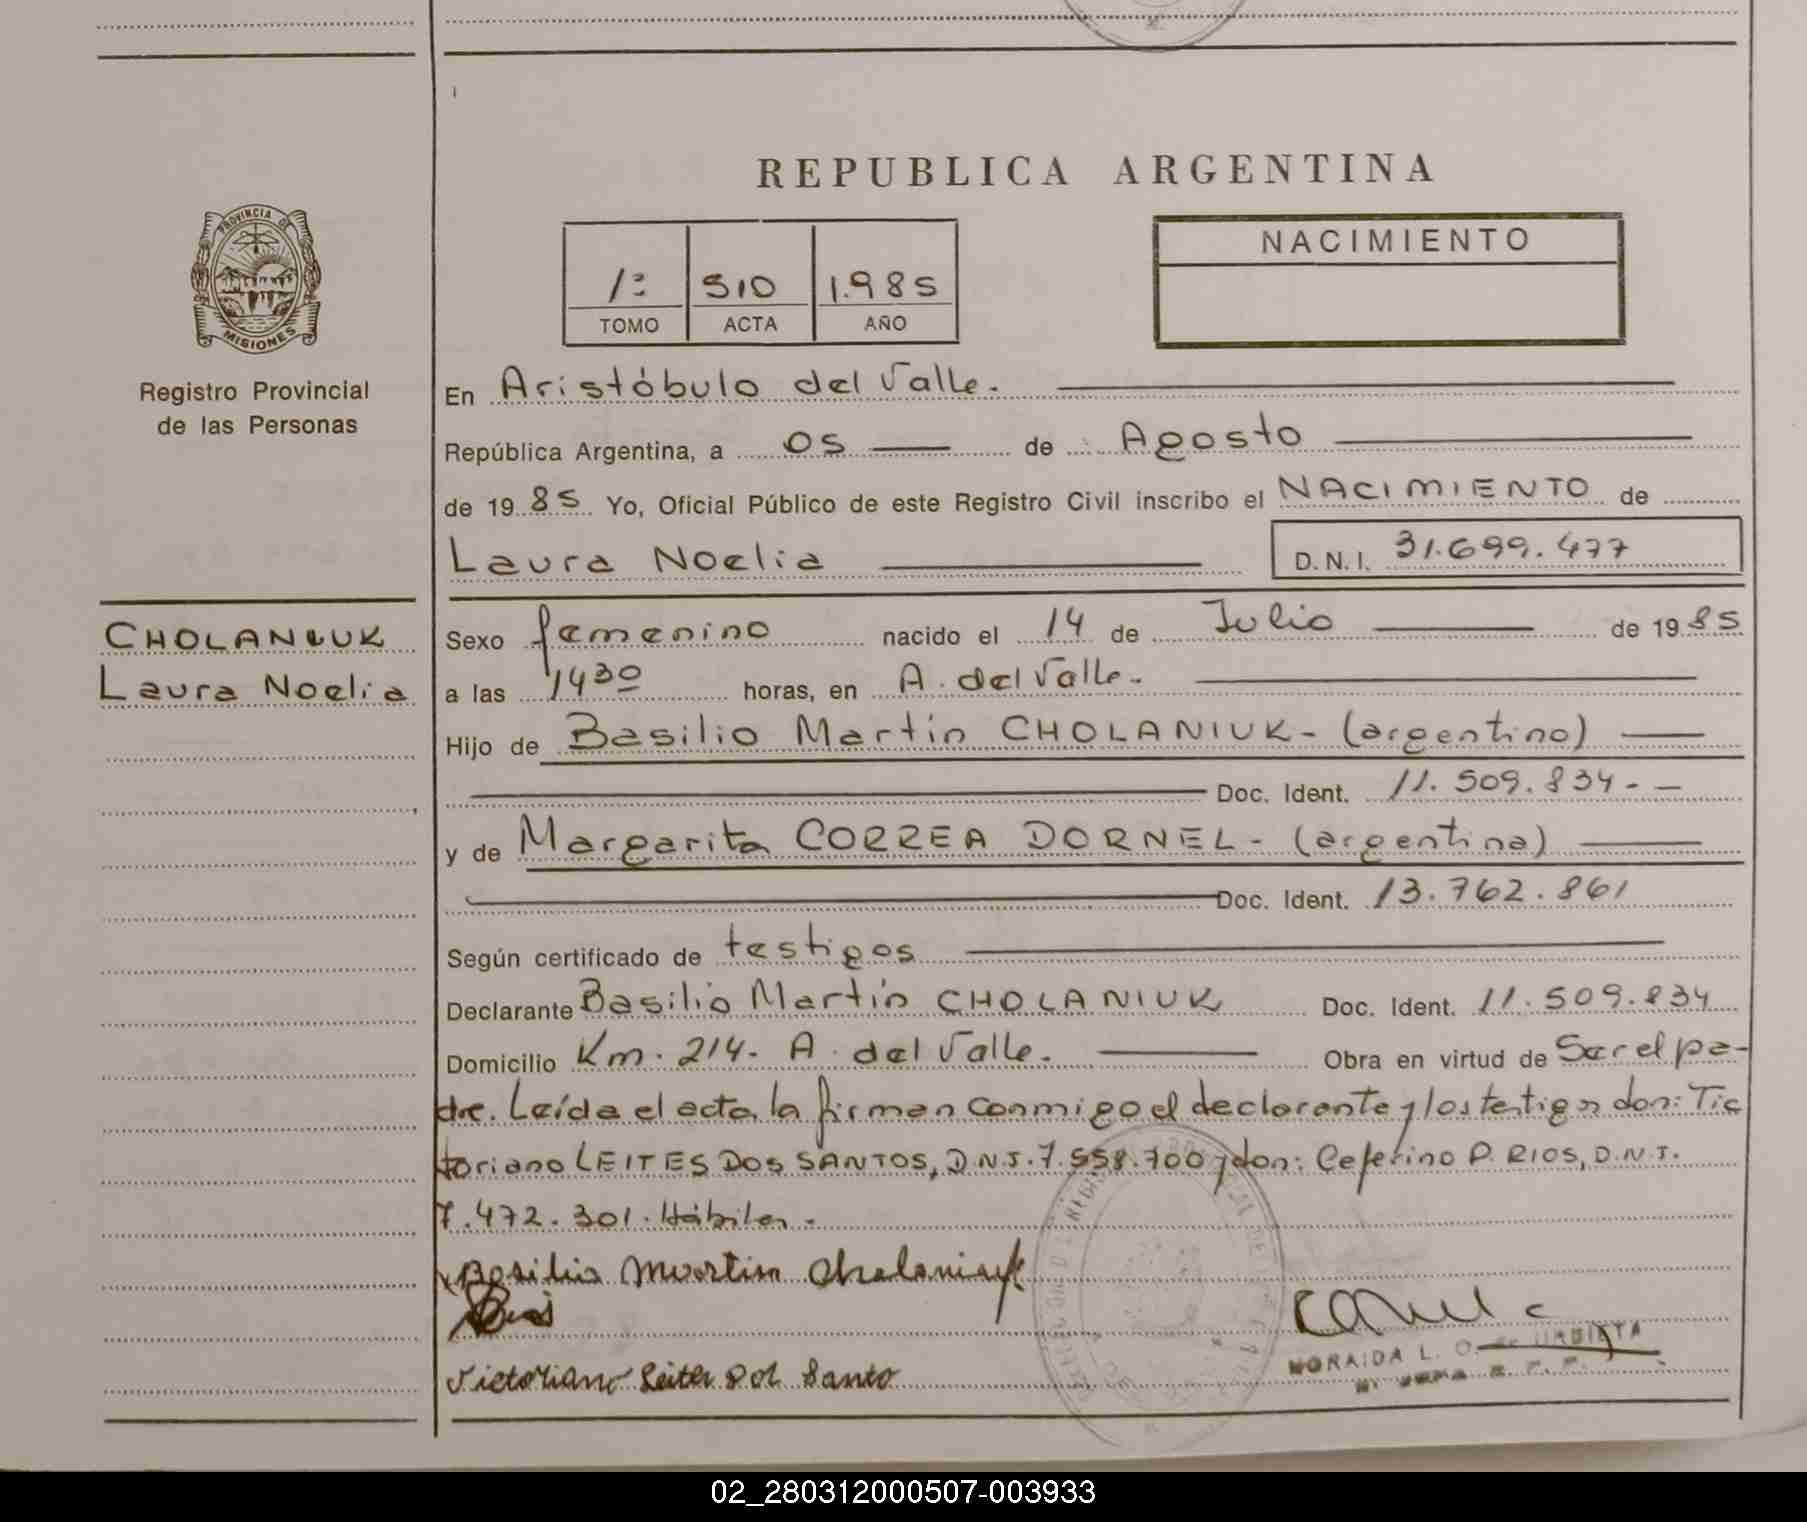 REPUBLICA ARGENTINA
PROVINCIA DE
MISIONES
Registro Provincial
de las Personas
1º 510 1.985
TOMO ACTA AÑO
NACIMIENTO
En Aristóbulo del Valle.
República Argentina, a 05 de Agosto
de 1985 Yo, Oficial Público de este Registro Civil inscribo el NACIMIENTO de
Laura Noelia D.N.I. 31.699.477
CHOLANIUK
Laura Noelia
Sexo femenino nacido el 14 de Julio de 1985
a las 1430 horas, en A. del Valle.
Hijo de Basilio Martín CHOLANIUK- (argentino)
Doc. Ident. 11.509.834-
y de Margarita CORREA DORNEL- (argentina)
Doc. Ident. 13.762.861
Según certificado de testigos
Declarante Basilio Martín CHOLANIUK Doc. Ident. 11.509.834
Domicilio Km. 214- A. del Valle. Obra en virtud de Ser el pa-
dre. Leída el acta, la firman conmigo el declarante y los testigos don: Vic
toriano LEITES DOS SANTOS, D.N.I. 7.558.700 y don: Ceferino P. RIOS, D.N.I.
7.472.301. Hábiles.
Basilio Martin Cholaniuk
Rios
Victoriano Leites Dos Santo
NORAIDA L. O. de URBIETA
02_280312000507-003933